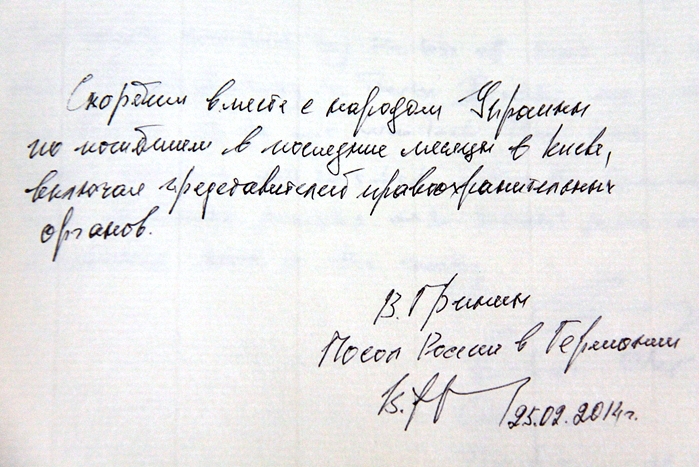 Скорбим вместе с народом Украины
по погибшим в последние месяцы в Киеве,
включая представителей правоохранительных
органов.
В. Гринин
Посол России в Германии
25.02.2014г.